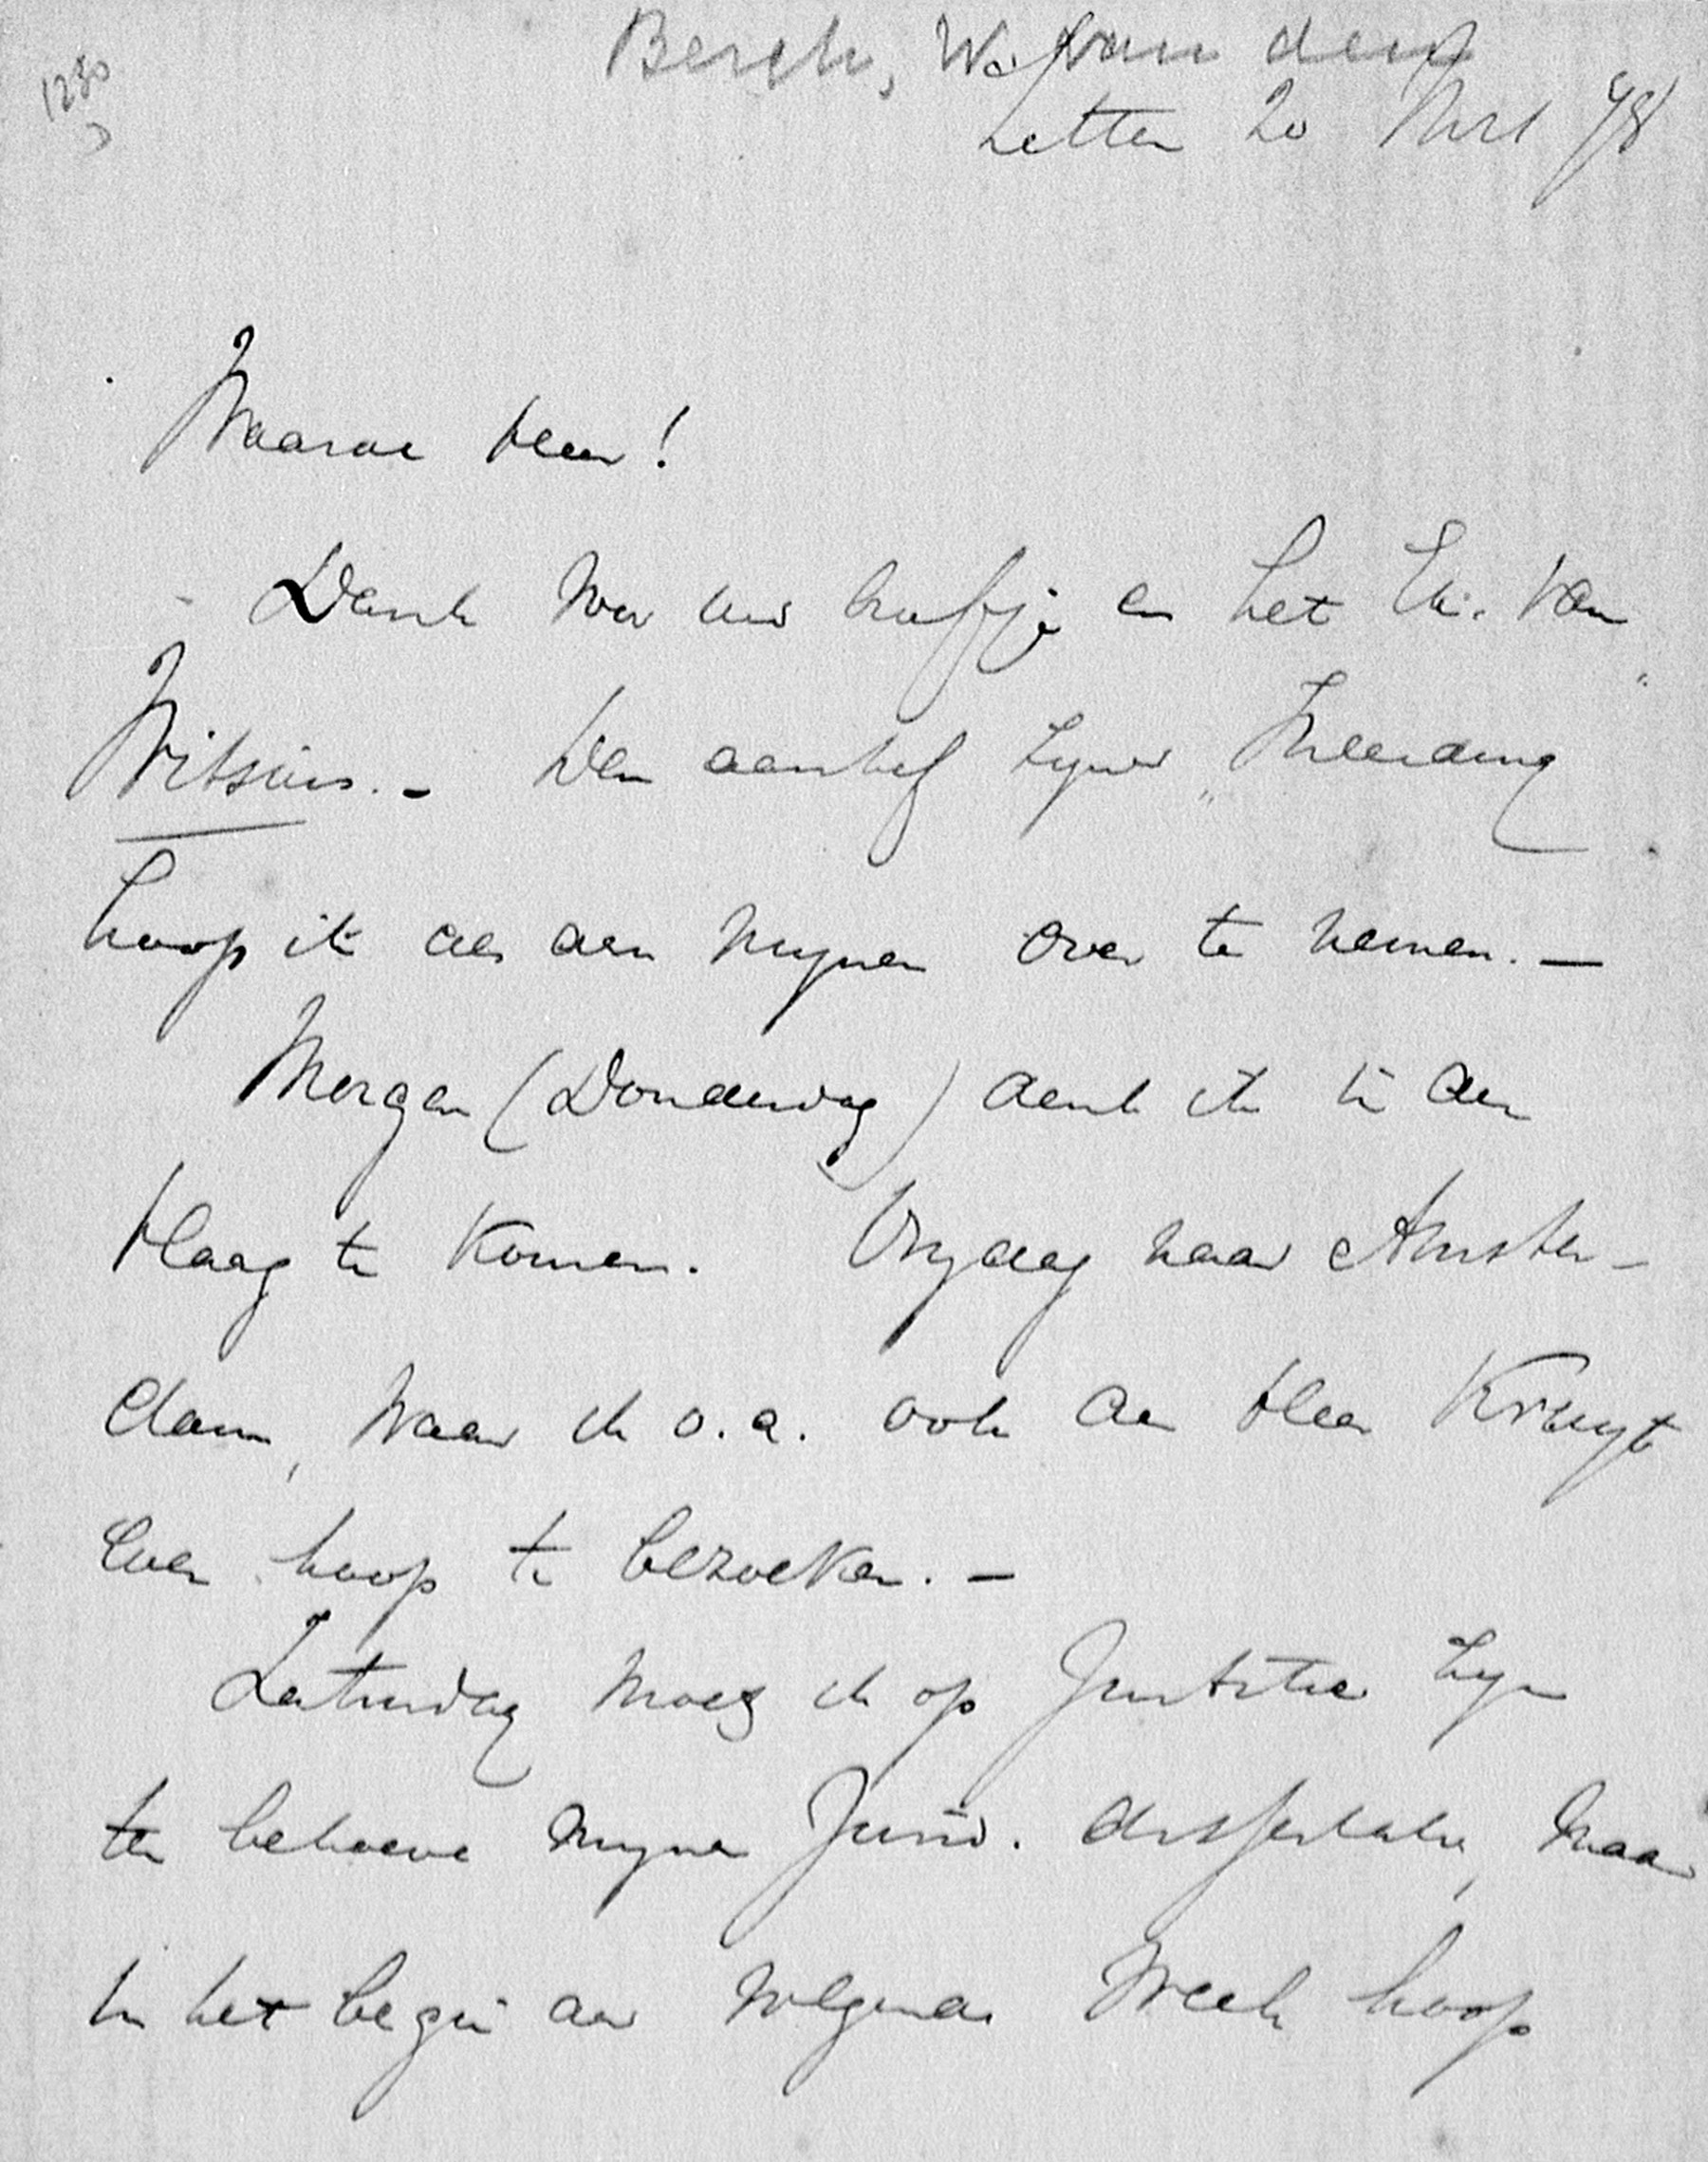 1280
Bergh, W. van den
Zetten 20 Mrt 78
Waarde Heer!
Dank voor uw briefje en het Ex. van
Witsius. – Den aanhef zijner „Inleiding"
hoop ik als den mijnen over te nemen. –
Morgen (Donderdag) denk ik in den
Haag te komen. Vrijdag naar Amster-
dam, waar ik o.a. ook den Heer Kruyt
even hoop te bezoeken. –
Zaturdag moet ik op zijn
ten behoeve mijner dissertatie, maar
In het begin der volgende week hoop